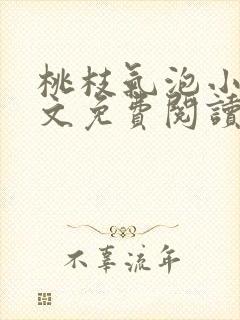 桃枝氣泡小
文免費閱讀
不辜流年